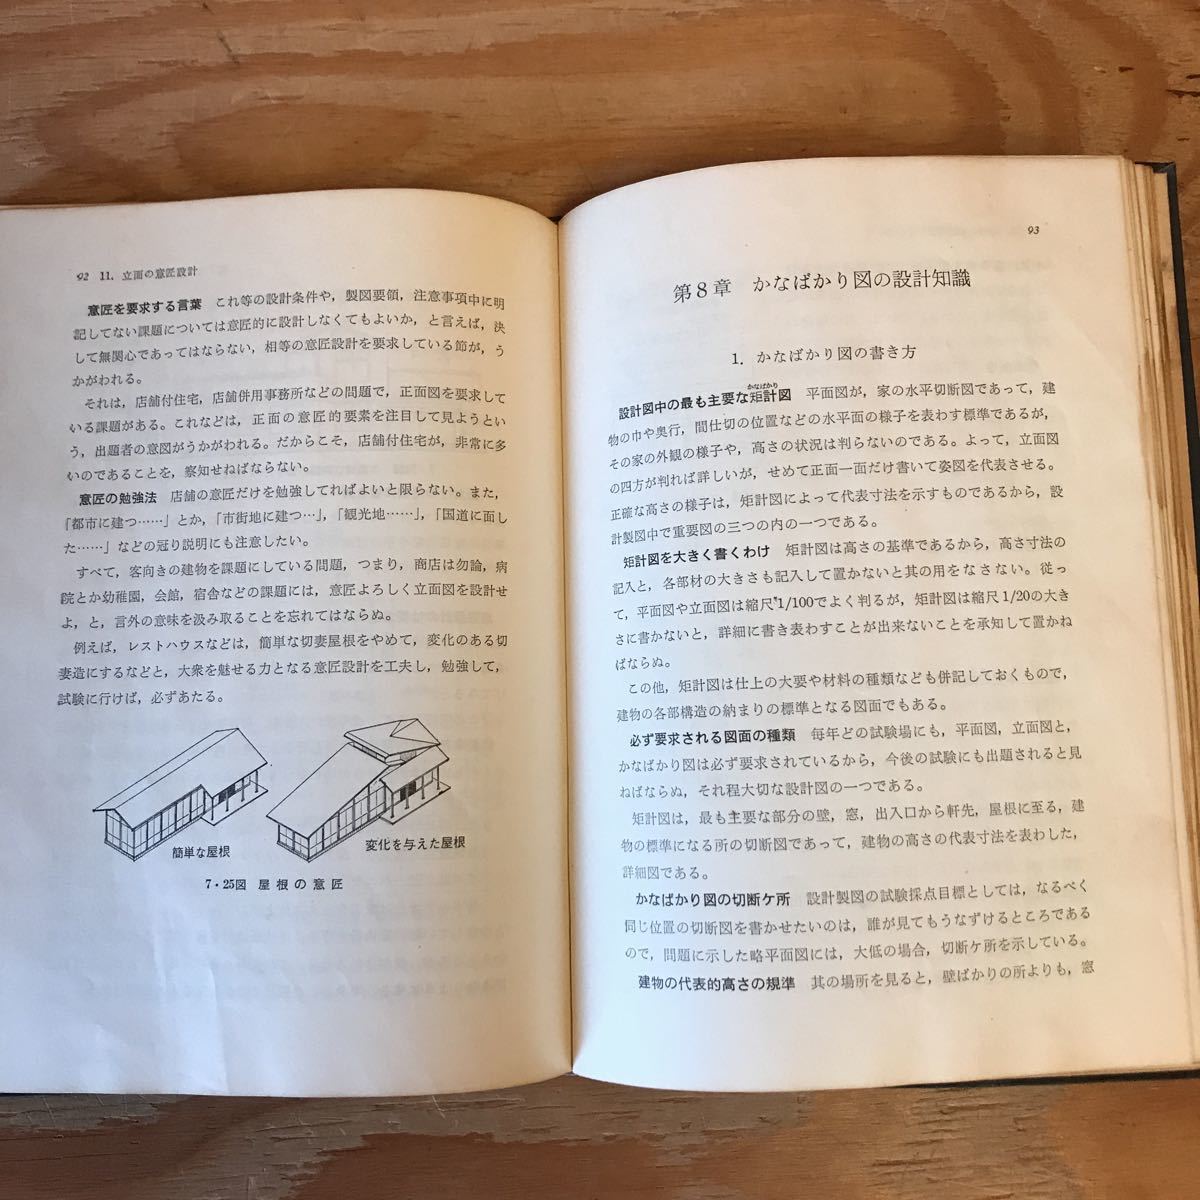 92 11. 立面の意匠設計
意匠を要求する言葉　これ等の設計条件や，製図要領，注意事項中に明
記してない課題については意匠的に設計しなくてもよいか，と言えば，決
して無関心であってはならない，相等の意匠設計を要求している節が，う
かがわれる。
それは，店舗付住宅，店舗併用事務所などの問題で，正面図を要求して
いる課題がある。これなどは，正面の意匠的要素を注目して見ようとい
う，出題者の意図がうかがわれる。だからこそ，店舗付住宅が，非常に多
いのであることを，察知せねばならない。
意匠の勉強法　店舗の意匠だけを勉強してればよいと限らない。また，
「都市に建つ……」とか，「市街地に建つ…」，「観光地……」，「国道に面し
た……」などの冠り説明にも注意したい。
すべて，客向きの建物を課題にしている問題，つまり，商店は勿論，病
院とか幼稚園，会館，宿舎などの課題には，意匠よろしく立面図を設計せ
よ，と，言外の意味を汲み取ることを忘れてはならぬ。
例えば，レストハウスなどは，簡単な切妻屋根をやめて，変化のある切
妻造にするなどと，大衆を魅せる力となる意匠設計を工夫し，勉強して，
試験に行けば，必ずあたる。
簡単な屋根
変化を与えた屋根
7・25図 屋根の意匠
93
第8章　かなばかり図の設計知識
1. かなばかり図の書き方
かなばかり
設計図中の最も主要な矩計図　平面図が，家の水平切断図であって，建
物の巾や奥行，間仕切の位置などの水平面の様子を表わす標準であるが，
その家の外観の様子や，高さの状況は判らないのである。よって，立面図
の四方が判れば詳しいが，せめて正面一面だけ書いて姿図を代表させる。
正確な高さの様子は，矩計図によって代表寸法を示すものであるから，設
計製図中で重要図の三つの内の一つである。
矩計図を大きく書くわけ　矩計図は高さの基準であるから，高さ寸法の
記入と，各部材の大きさも記入して置かないと其の用をなさない。従っ
て，平面図や立面図は縮尺1/100でよく判るが，矩計図は縮尺1/20の大き
さに書かないと，詳細に書き表わすことが出来ないことを承知して置かね
ばならぬ。
この他，矩計図は仕上の大要や材料の種類なども併記しておくもので，
建物の各部構造の納まりの標準となる図面でもある。
必ず要求される図面の種類　毎年どの試験場にも，平面図，立面図と，
かなばかり図は必ず要求されているから，今後の試験にも出題されると見
ねばならぬ，それ程大切な設計図の一つである。
矩計図は，最も主要な部分の壁，窓，出入口から軒先，屋根に至る，建
物の標準になる所の切断図であって，建物の高さの代表寸法を表わした，
詳細図である。
かなばかり図の切断ケ所　設計製図の試験採点目標としては，なるべく
同じ位置の切断図を書かせたいのは，誰が見てもうなずけるところである
ので，問題に示した略平面図には，大低の場合，切断ケ所を示している。
建物の代表的高さの規準　其の場所を見ると，壁ばかりの所よりも，窓